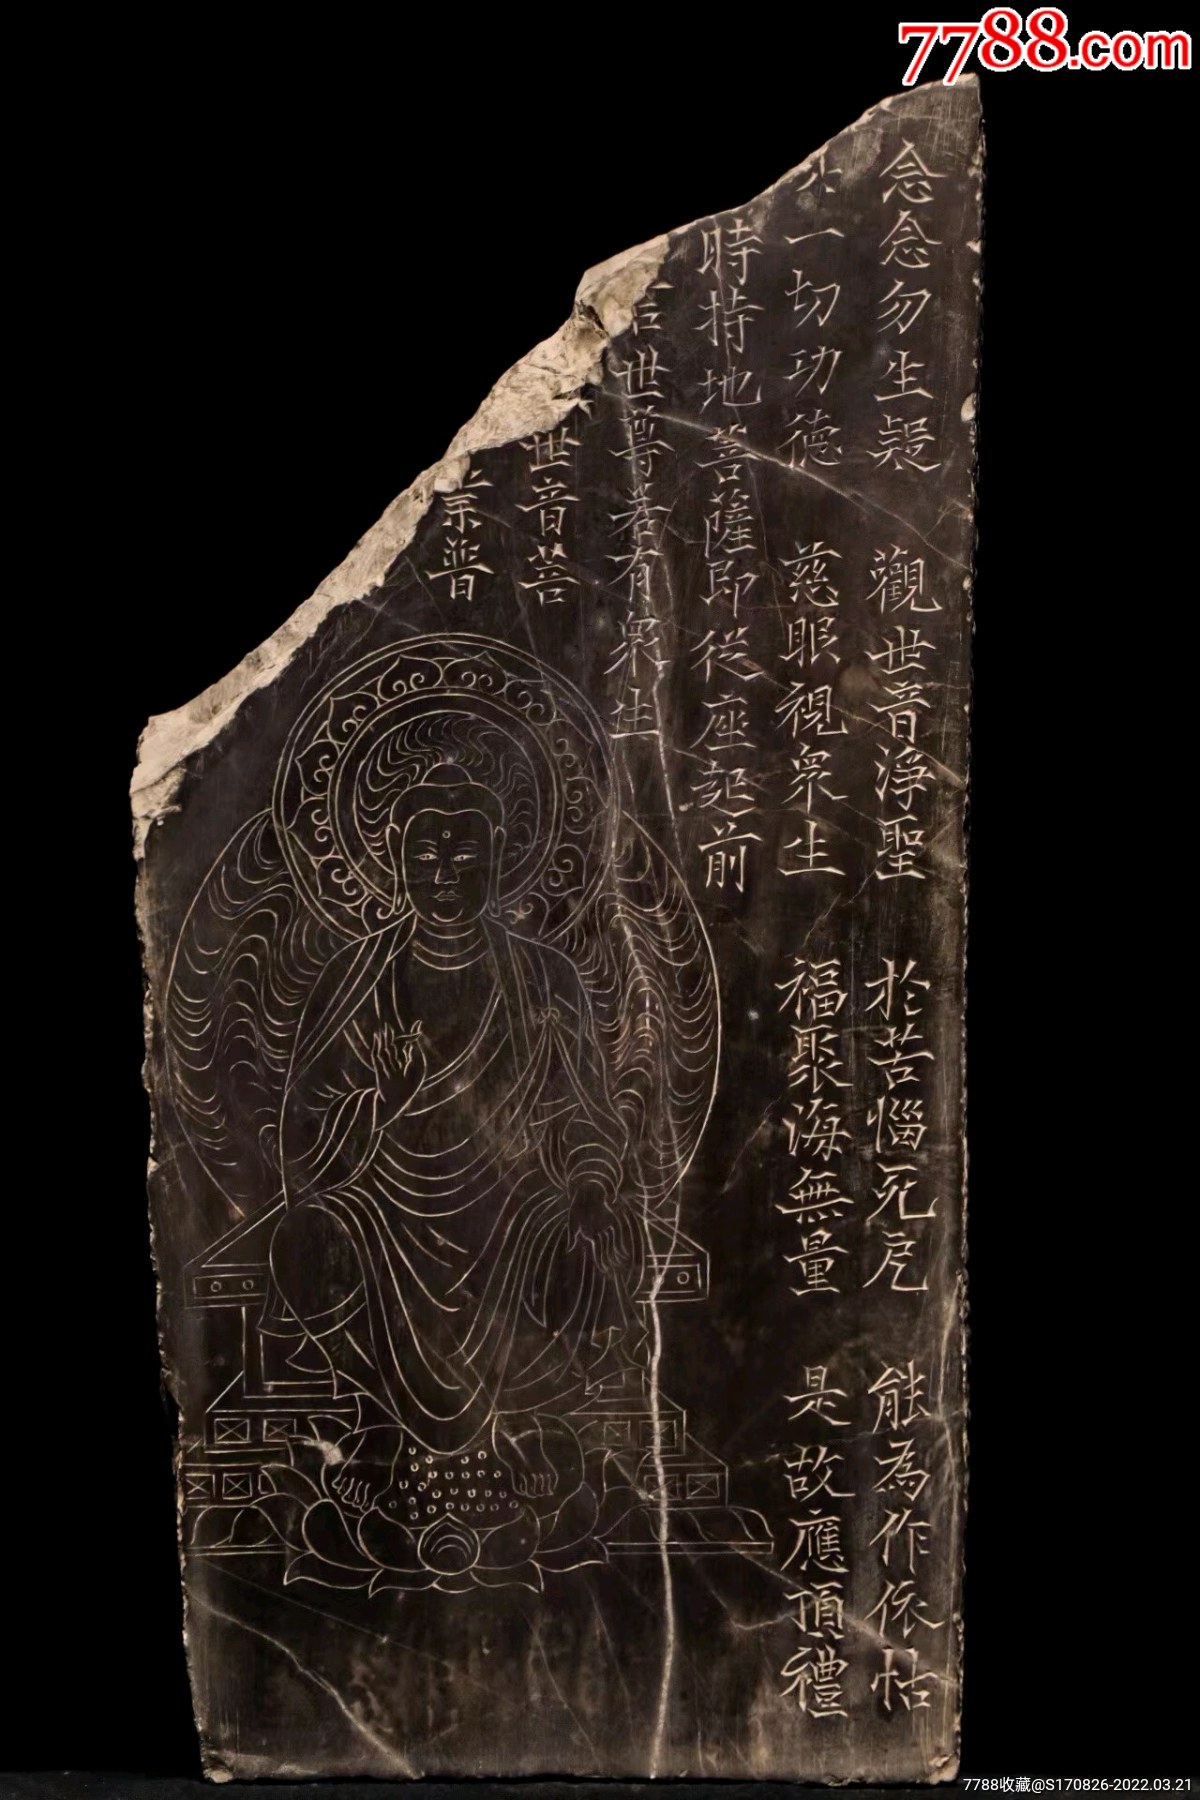 7788.com
念念勿生疑 觀世音淨聖 於苦惱死厄 能為作依怙
一切功德 慈眼視衆生 福聚海無量 是故應頂禮
時持地菩薩即從座起前
世尊若有衆生
世音菩
普
7788收藏@S170826-2022.03.21